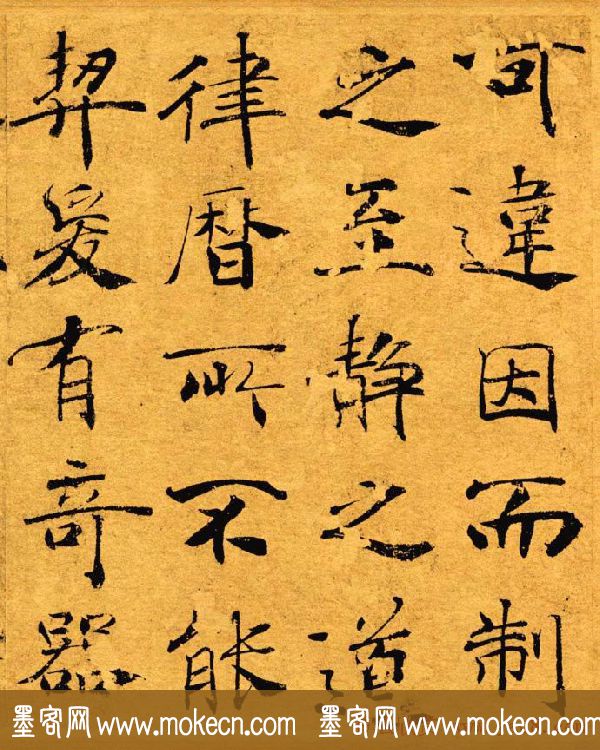 可違因而制
之至靜之道
律曆所不能
契爰有奇器
墨客网 www.mokecn.com 墨客网 www.mokecn.com